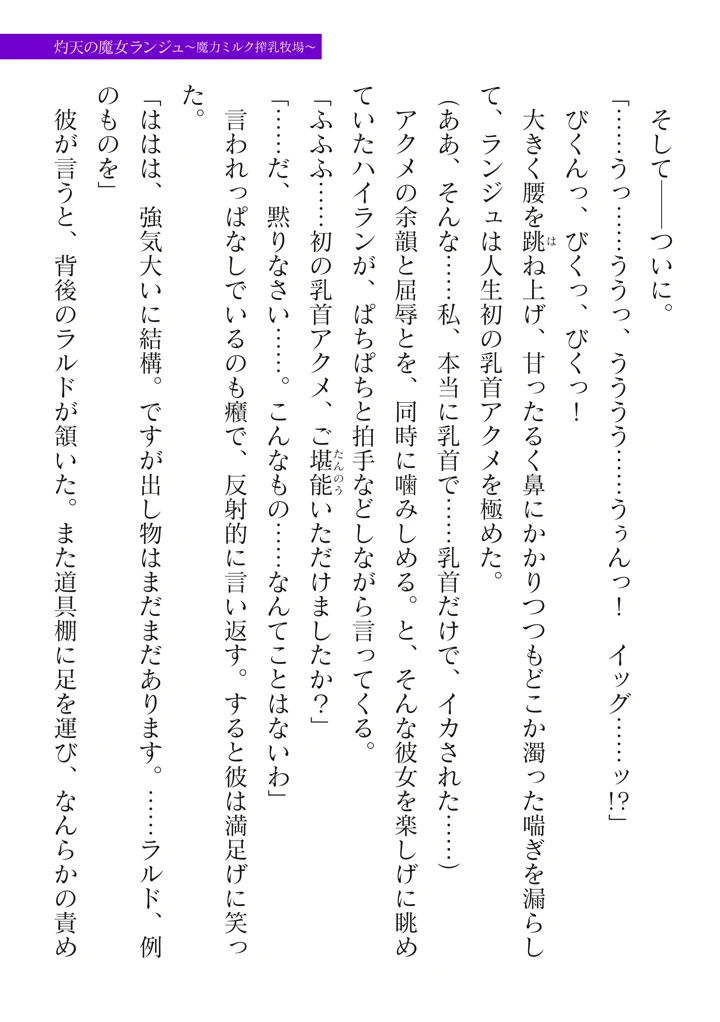 灼天の魔女ランジュ～魔力ミルク搾乳牧場～
そして――ついに。
「……うっ……ううっ、うううう……うぅんっ！　イッグ……ッ!?」
びくんっ、びくっ、びくっ！
大きく腰を跳ね上げ、甘ったるく鼻にかかりつつもどこか濁った喘ぎを漏らし
て、ランジュは人生初の乳首アクメを極めた。
(ああ、そんな……私、本当に乳首で……乳首だけで、イカされた……)
アクメの余韻と屈辱とを、同時に噛みしめる。と、そんな彼女を楽しげに眺め
ていたハイランが、ぱちぱちと拍手などしながら言ってくる。
「ふふふ……初の乳首アクメ、ご堪能いただけましたか？」
「……だ、黙りなさい……。こんなもの……なんてことはないわ」
言われっぱなしでいるのも癪で、反射的に言い返す。すると彼は満足げに笑っ
た。
「ははは、強気大いに結構。ですが出し物はまだまだあります。……ラルド、例
のものを」
彼が言うと、背後のラルドが頷いた。また道具棚に足を運び、なんらかの責め